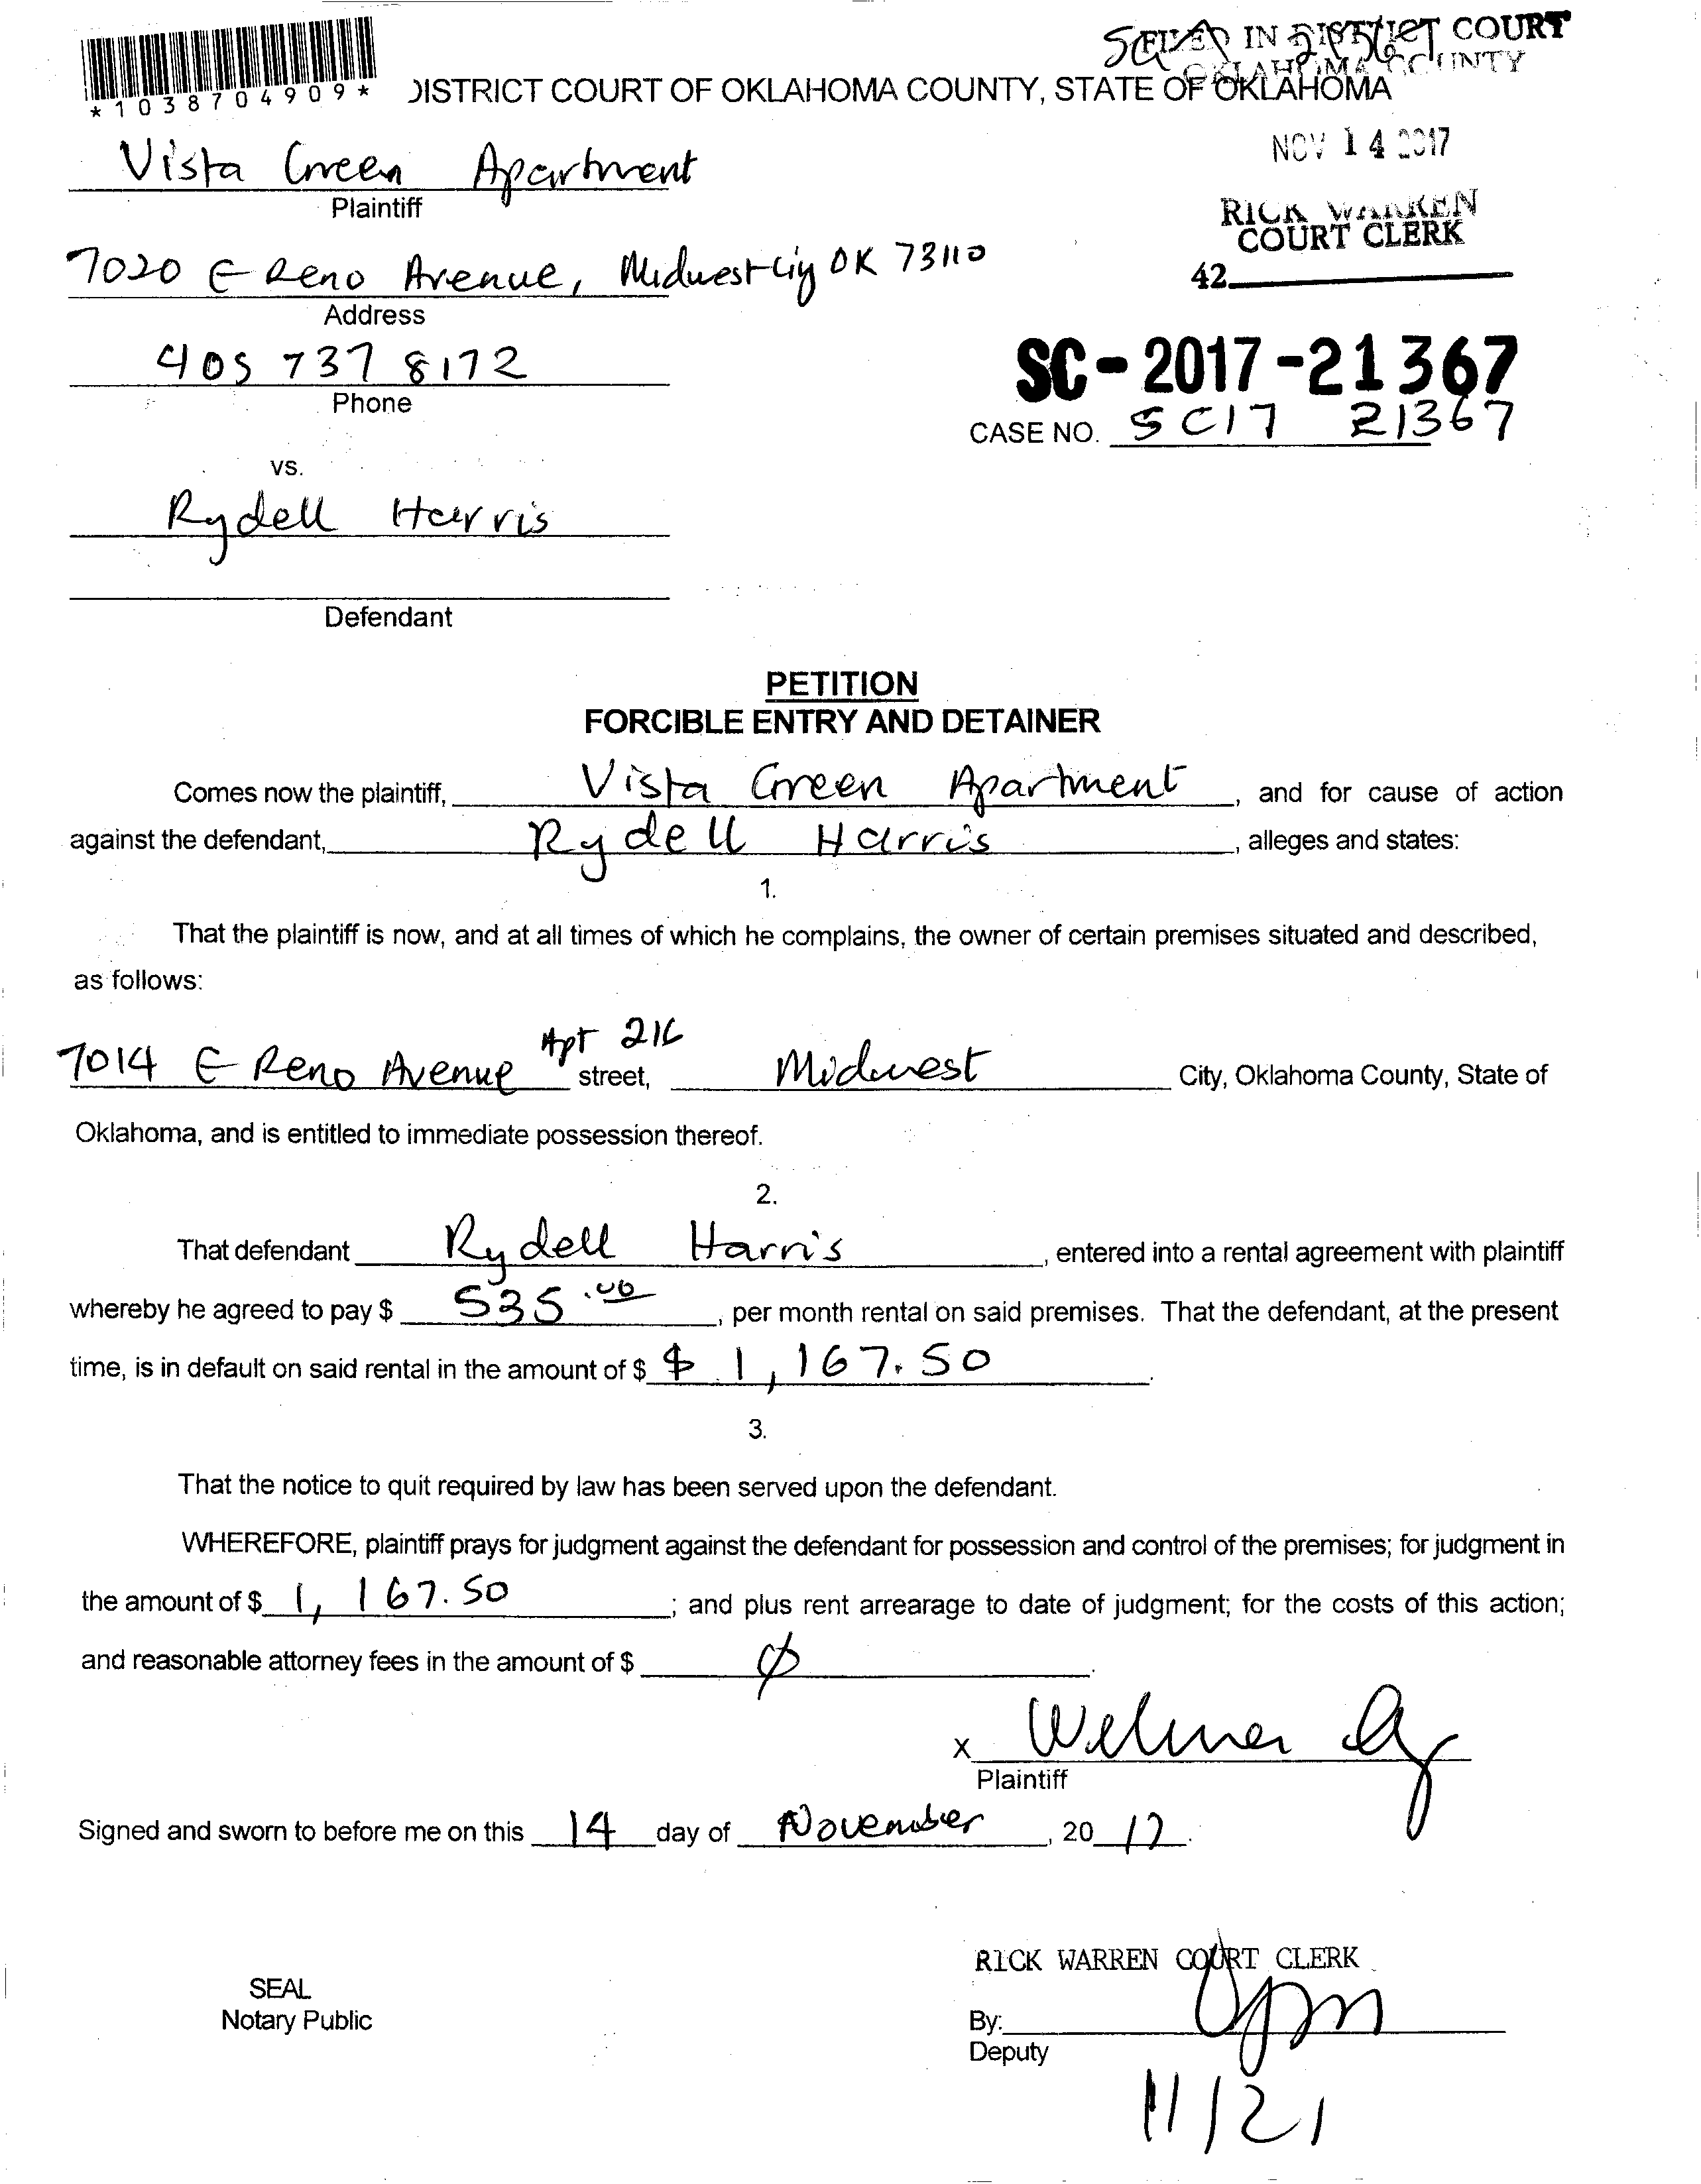 FILED IN DISTRICT COURT
OKLAHOMA COUNTY
*1038704909*
DISTRICT COURT OF OKLAHOMA COUNTY, STATE OF OKLAHOMA
NOV 14 2017
Vista Green Apartment
Plaintiff
RICK WARREN
COURT CLERK
42
7020 E Reno Avenue, Midwest City OK 73110
Address
405 737 8172
Phone
SC-2017-21367
CASE NO. SC17 21367
vs.
Rydell Harris
Defendant
PETITION
FORCIBLE ENTRY AND DETAINER
Comes now the plaintiff, Vista Green Apartment, and for cause of action
against the defendant, Rydell Harris, alleges and states:
1.
That the plaintiff is now, and at all times of which he complains, the owner of certain premises situated and described,
as follows:
7014 E Reno Avenue Apt 216 street, Midwest City, Oklahoma County, State of
Oklahoma, and is entitled to immediate possession thereof.
2.
That defendant Rydell Harris, entered into a rental agreement with plaintiff
whereby he agreed to pay $ 535.00, per month rental on said premises. That the defendant, at the present
time, is in default on said rental in the amount of $ $ 1,167.50.
3.
That the notice to quit required by law has been served upon the defendant.
WHEREFORE, plaintiff prays for judgment against the defendant for possession and control of the premises; for judgment in
the amount of $ 1,167.50; and plus rent arrearage to date of judgment; for the costs of this action;
and reasonable attorney fees in the amount of $ ∅.
x Welmer
Plaintiff
Signed and sworn to before me on this 14 day of November, 20 17.
RICK WARREN COURT CLERK
SEAL
Notary Public
By:
Deputy
11/21